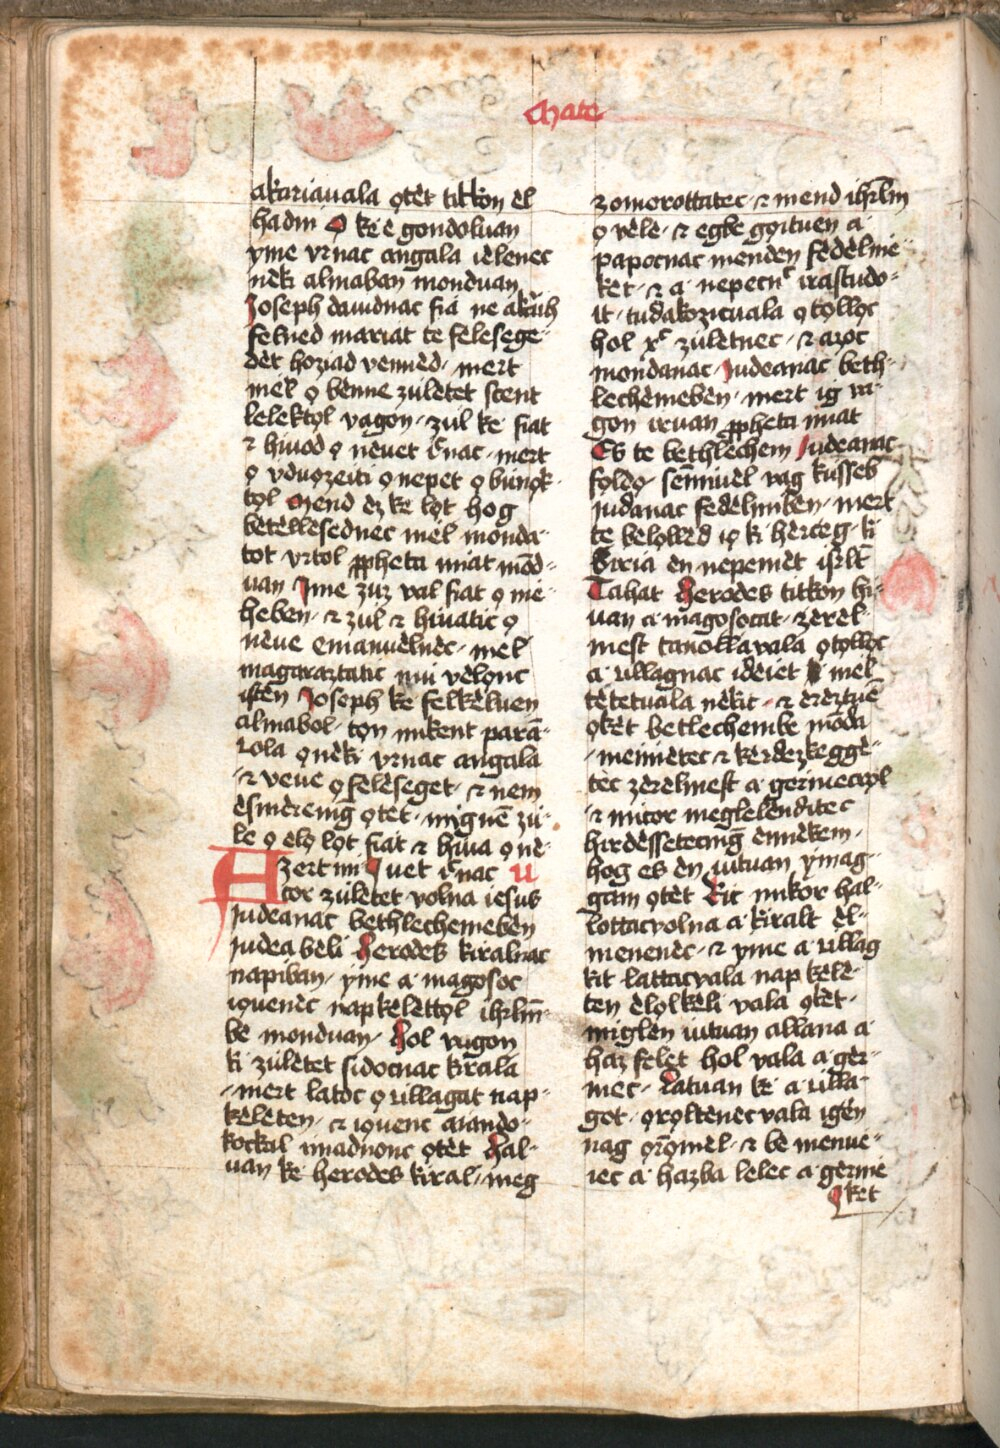 Mate
akariauala ọtèt titkon èl
hadni Ọ ke è gondoluan
yme vrnac angala ièlenec
nèki almaban monduan
Joseph dauidnac fia ne akaih
felned mariat te felesege-
dèt hoziad venned · mert
mèl ọ bènne zúlètèt scent
lelektọl vagon · zúl ke fiat
⁊ hiuod ọ neuèt ic̄nac · mert
ọ vduọzeiti ọ nepèt ọ búnọk-
tọl Mend èz ke lọt hog
betèllèsednec mèl monda-
tot vrtol ꝓpheta miat mōd-
uan Jme zúz val fiat ọ me-
heben · ⁊ zúl ⁊ hiuatic ọ
nèue emanuèlnèc · mèl
magaraztatic mú vèlọnc
istèn Joseph ke felkèluen
almabol · tọn mikent parā-
lola ọnèki vrnac angala
⁊ veue ọ felèseget · ⁊ nem
èsmèreīg ọtèt · mignē zú-
lè ọ èlọ̇ lọt fiat ⁊ hiua ọ nè-
uet ic̄nac II
Azert mi-
cor zúlètèt volna iesus
Judeanac bethlechemeben
Judea beli Herodes kiralnac
napiban · yme a· magosoc
iọuenèc napkèlèttọl ihrlm̄-
be monduan · Hol vagon
ki zúlètèt sidocnac kirala
· mert latọc ọ uillagat nap-
kèlèten · ⁊ iọuēnc aiando-
kockal imadnonc ọtèt Hal-
uan ke herodes kiral · meg
zomorottatec · ⁊ mend ihrlm̄
ọ vèle · ⁊ egbe gọituen a·
papocnac menden fedèlme-
ket · ⁊ a· nepecnc irastudo-
it · tudakozicuala ọtọllọc
hol xc̄ zúlètnec · ⁊ azoc
mondanac · Judeanac beth-
lechèmebèn · mert ig va-
gon iruan ꝓpheta miat
Es te bethlèchem Judeanac
foldọ · semmiuèl vag kússeb
iudanac fedèlmiben · mert
te belọlled iọ ki hèrceg · ki
biria èn nepemèt isrl̄t
Tahat Herodes titkon hi-
uan a· magosocat · zèrèl-
mest tanollauala ọtọllọc
a· uillagnac idèiet mèl
tètetuala nèkic · ⁊ èrèztuē
ọkèt betlechembe mōda
· menniètec ⁊ kèrdezkeggè-
tec zèrèlmest a· germecrọl
· ⁊ micor meglelènditec
hirdèssètecmg̃ ènnèkem ·
hog es èn iutuan ymag-
gam ọtèt Kic mikor hal-
lottacvolna a· kiralt èl-
menenèc · ⁊ yme a· uillag
kit lattacvala nap kèlè-
ten èlọlkèli vala ọkèt ·
miglen iutuan allana a·
haz felèt hol vala a· gèr-
mec · Latuan ke a· uilla-
got · ọrọltenec vala igèn
nag ọrọmèl · ⁊ be menue-
iec a· hazba lelec a· germe
ket